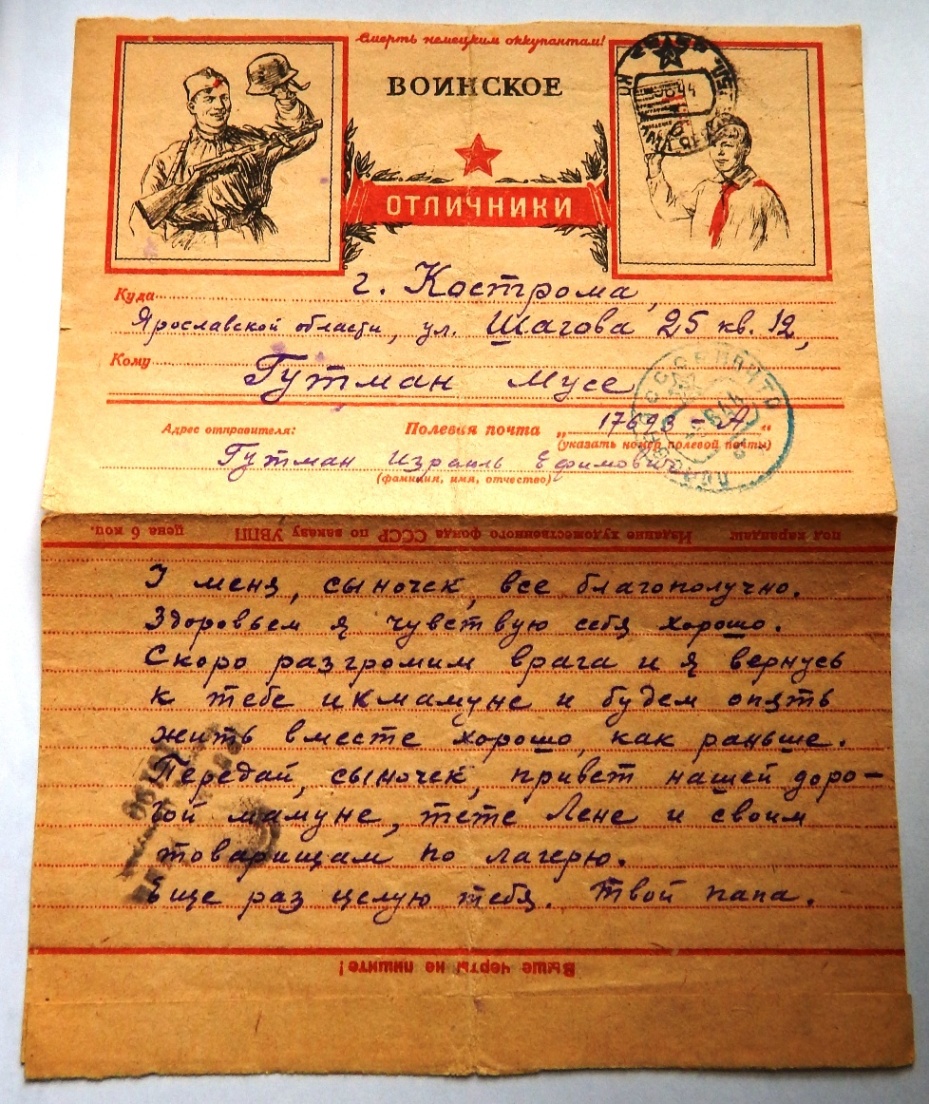 Смерть немецким оккупантам!
ВОИНСКОЕ
ОТЛИЧНИКИ
Куда г. Кострома,
Ярославской области, ул. Шагова 25 кв. 12,
Кому Гутман Мусе
Адрес отправителя: Полевая почта „17693-А“
(указать номер полевой почты)
Гутман Израиль Ефимович
(фамилия, имя, отчество)
под карандаш Издание художественного фонда СССР по заказу УВПП цена 6 коп.
У меня, сыночек, все благополучно.
Здоровьем я чувствую себя хорошо.
Скоро разгромим врага и я вернусь
к тебе и к мамуне и будем опять
жить вместе хорошо, как раньше.
Передай, сыночек, привет нашей доро-
гой мамуне, тете Лене и своим
товарищам по лагерю.
Еще раз целую тебя. Твой папа.
Выше черты не пишите!